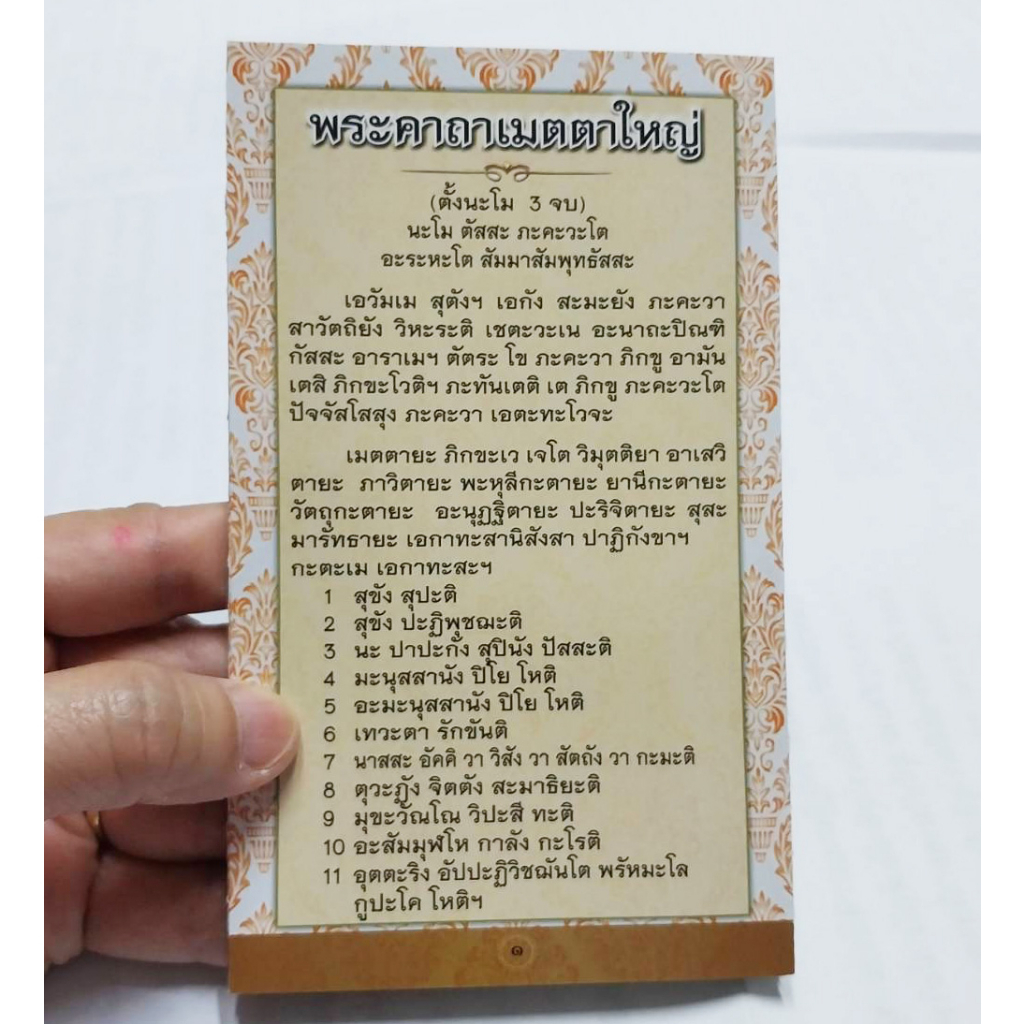 พระคาถาเมตตาใหญ่
(ตั้งนะโม 3 จบ)
นะโม ตัสสะ ภะคะวะโต
อะระหะโต สัมมาสัมพุทธัสสะ
เอวัมเม สุตังฯ เอกัง สะมะยัง ภะคะวา
สาวัตถิยัง วิหะระติ เชตะวะเน อะนาถะปิณฑิ
กัสสะ อาราเมฯ ตัตระ โข ภะคะวา ภิกขู อามัน
เตสิ ภิกขะโวติฯ ภะทันเตติ เต ภิกขู ภะคะวะโต
ปัจจัสโสสุง ภะคะวา เอตะทะโวจะ
เมตตายะ ภิกขะเว เจโต วิมุตติยา อาเสวิ
ตายะ ภาวิตายะ พะหุลีกะตายะ ยานีกะตายะ
วัตถุกะตายะ อะนุฏฐิตายะ ปะริจิตายะ สุสะ
มารัทธายะ เอกาทะสานิสังสา ปาฏิกังขาฯ
กะตะเม เอกาทะสะฯ
1 สุขัง สุปะติ
2 สุขัง ปะฏิพุชฌะติ
3 นะ ปาปะกัง สุปินัง ปัสสะติ
4 มะนุสสานัง ปิโย โหติ
5 อะมะนุสสานัง ปิโย โหติ
6 เทวะตา รักขันติ
7 นาสสะ อัคคิ วา วิสัง วา สัตถัง วา กะมะติ
8 ตุวะฏัง จิตตัง สะมาธิยะติ
9 มุขะวัณโณ วิปะสี ทะติ
10 อะสัมมุฬโห กาลัง กะโรติ
11 อุตตะริง อัปปะฏิวิชฌันโต พรัหมะโล
กูปะโค โหติฯ
๑